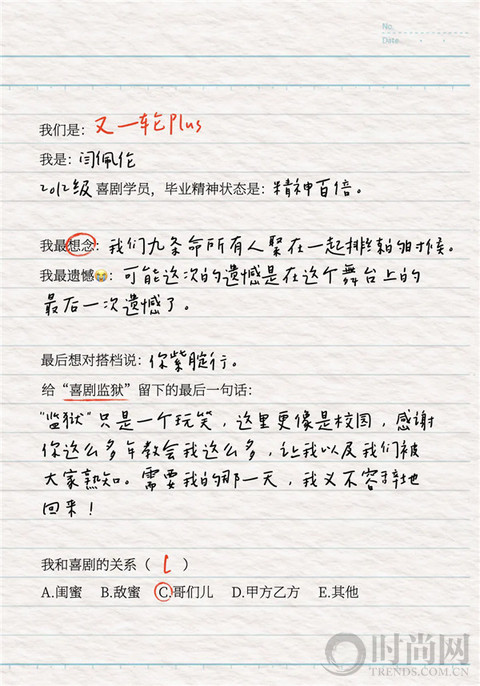 No.
Date
我们是：又一轮Plus
我是：闫佩伦
2012级喜剧学员，毕业精神状态是：精神百倍。
我最想念：我们九条命所有人聚在一起排练的时候。
我最遗憾😭：可能这次的遗憾是在这个舞台上的
最后一次遗憾了。
最后想对搭档说：你紫腚行。
给“喜剧监狱”留下的最后一句话：
“监狱”只是一个玩笑，这里更像是校园，感谢
你这么多年教会我这么多，让我以及我们被
大家熟知。需要我的那一天，我义不容辞地
回来！
我和喜剧的关系（ C ）
A.闺蜜 B.敌蜜 C.哥们儿 D.甲方乙方 E.其他
时尚网
TRENDS.COM.CN